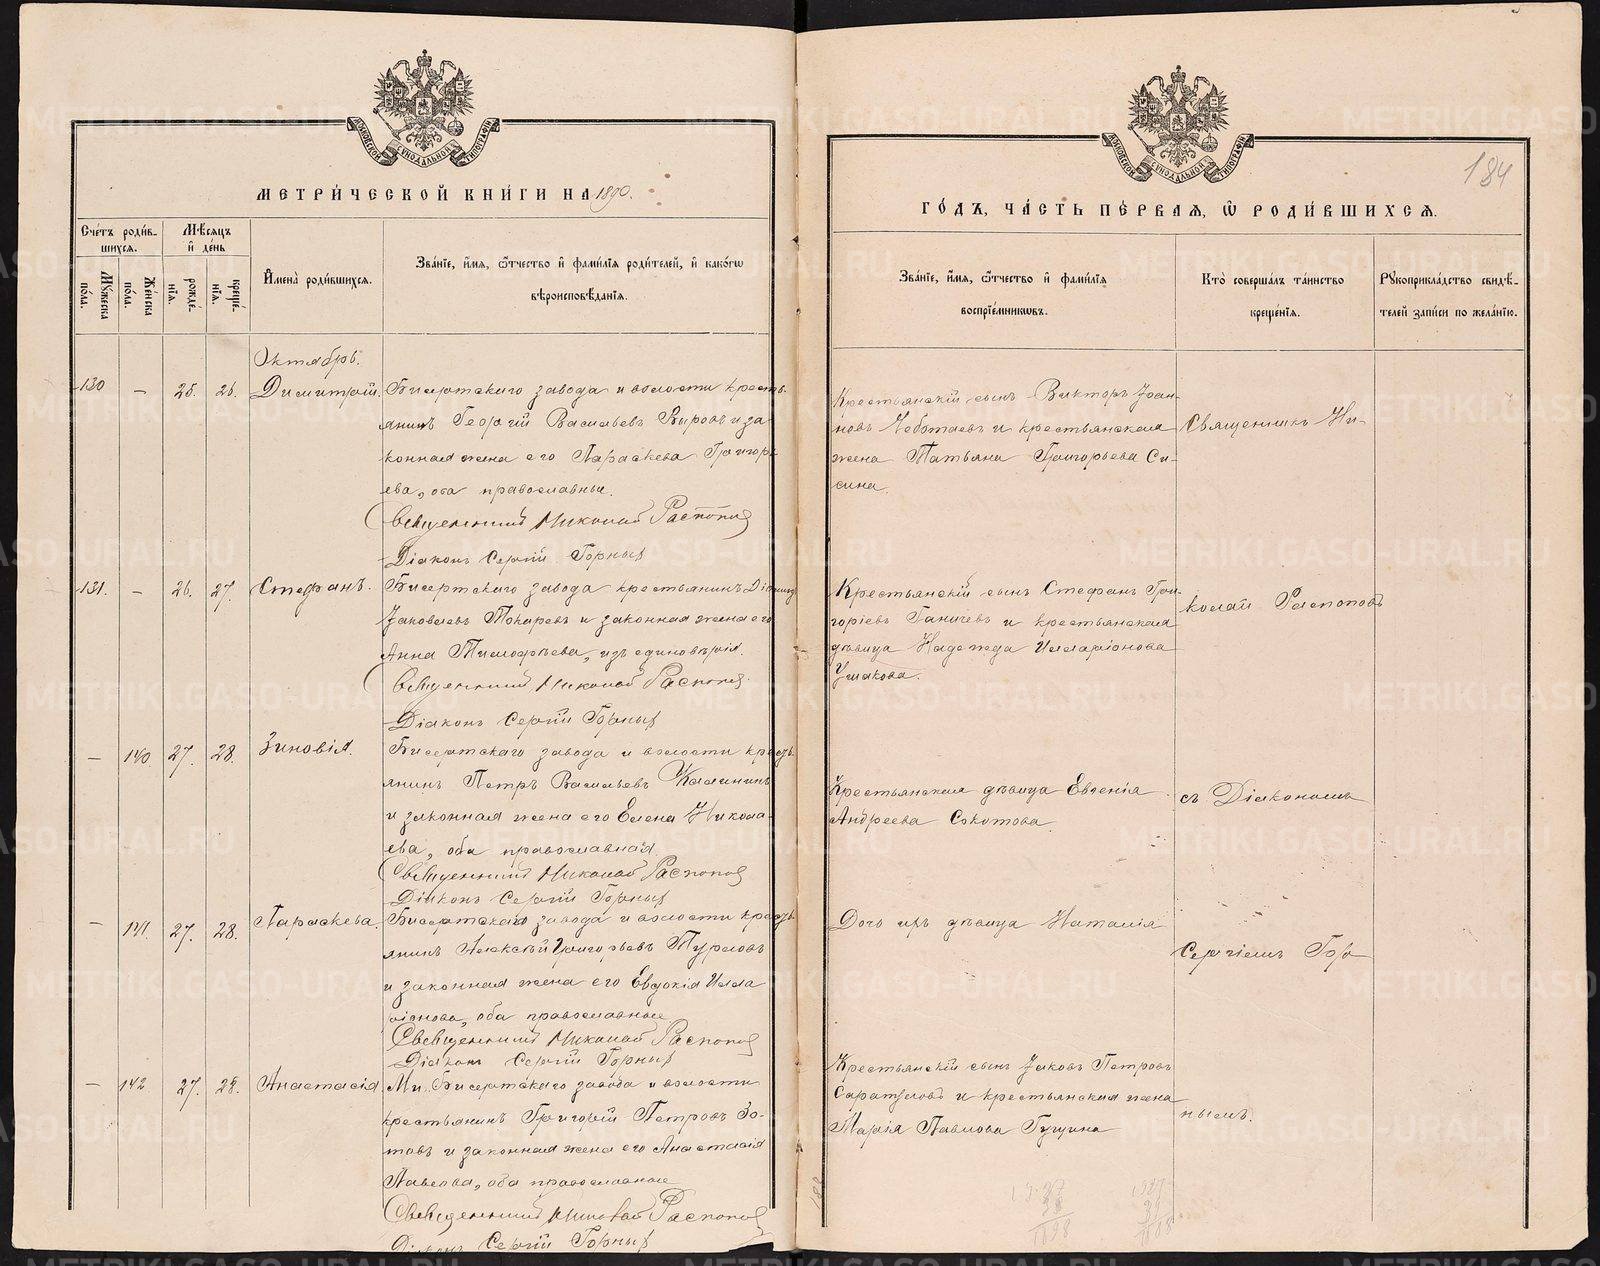 МОСКОВСКОЙ СѴНОДАЛЬНОЙ ТИПОГРАФІИ
МЕТРИ́ЧЕСКОЙ КНИ́ГИ НА 1890.
Сче́тъ роди́в-
шихся.
Мѣ́сяцъ
и҆ де́нь
Му́жеска
по́ла.
Же́нска
по́ла.
рожде́-
нїя.
креще́-
нїя.
И҆мена̀ роди́вшихся.
Зва́нїе, и҆́мя, ѻ҆́тчество и҆ фами́лїя роди́телей, и҆ како́гѡ
вѣроисповѣ́данїя.
Октябрь.
130 — 25. 26. Димитрій. Бисертскаго завода и волости кресть-
янинъ Георгій Васильевъ Выровъ и за
конная жена его Параскева Григорь
ева, оба православные.
Священникъ Николай Распоповъ
Діаконъ Сергій Горныхъ
131. — 26. 27. Стефанъ. Бисертскаго завода крестьянинъ
Іаковлевъ Токаревъ и законная жена его
Анна Тимофѣева, изъ единовѣрія.
Священникъ Николай Распоповъ
Діаконъ Сергій Горныхъ
— 140 27. 28. Зиновія. Бисертскаго завода и волости кресть
янинъ Петръ Васильевъ Калининъ
и законная жена его Елена Никола-
ева, оба православныя
Священникъ Николай Распоповъ
Діаконъ Сергій Горныхъ
— 141. 27. 28. Параскева. Бисертскаго завода и волости кресть
янинъ Алексѣй Григорьевъ
и законная жена его Евдокія Илла
ріонова, оба православные
Священникъ Николай Распоповъ
Діаконъ Сергій Горныхъ
— 142 27. 28. Анастасія. Бисертскаго завода и волости
крестьянинъ Григорій Петровъ Зо-
товъ и законная жена его Анастасія
Павлова, оба православные
Священникъ Николай Распоповъ
Діаконъ Сергій Горныхъ
184
МОСКОВСКОЙ СѴНОДАЛЬНОЙ ТИПОГРАФІИ
ГО́ДЪ, ЧА́СТЬ ПЕ́РВАЯ, Ѡ҆ РОДИ́ВШИХСЯ.
Зва́нїе, и҆́мя, ѻ҆́тчество и҆ фами́лїя
воспрїе́мникѡвъ.
Кто̀ соверша́лъ та́инство
креще́нїя.
Рꙋкоприкла́дство свидѣ́-
телей за́писи по жела́нїю.
Крестьянскій сынъ Викторъ Іоан-
новъ Чеботаевъ и крестьянская
жена Татьяна Григорьева Си-
сина.
Священникъ Ни-
Крестьянскій сынъ Стефанъ Гри-
горіевъ Ганичевъ и крестьянская
дѣвица Надежда Илларіонова
Ушакова.
колай Распоповъ
Крестьянская дѣвица Евгенія
Андреева Сокотова.
съ Діакономъ
Дочь ихъ дѣвица Наталія
Сергіемъ Гор-
Крестьянскій сынъ Іаковъ Петровъ
и крестьянская жена
Марія Павлова Гущина
нымъ.
METRIKI.GASO-URAL.RU